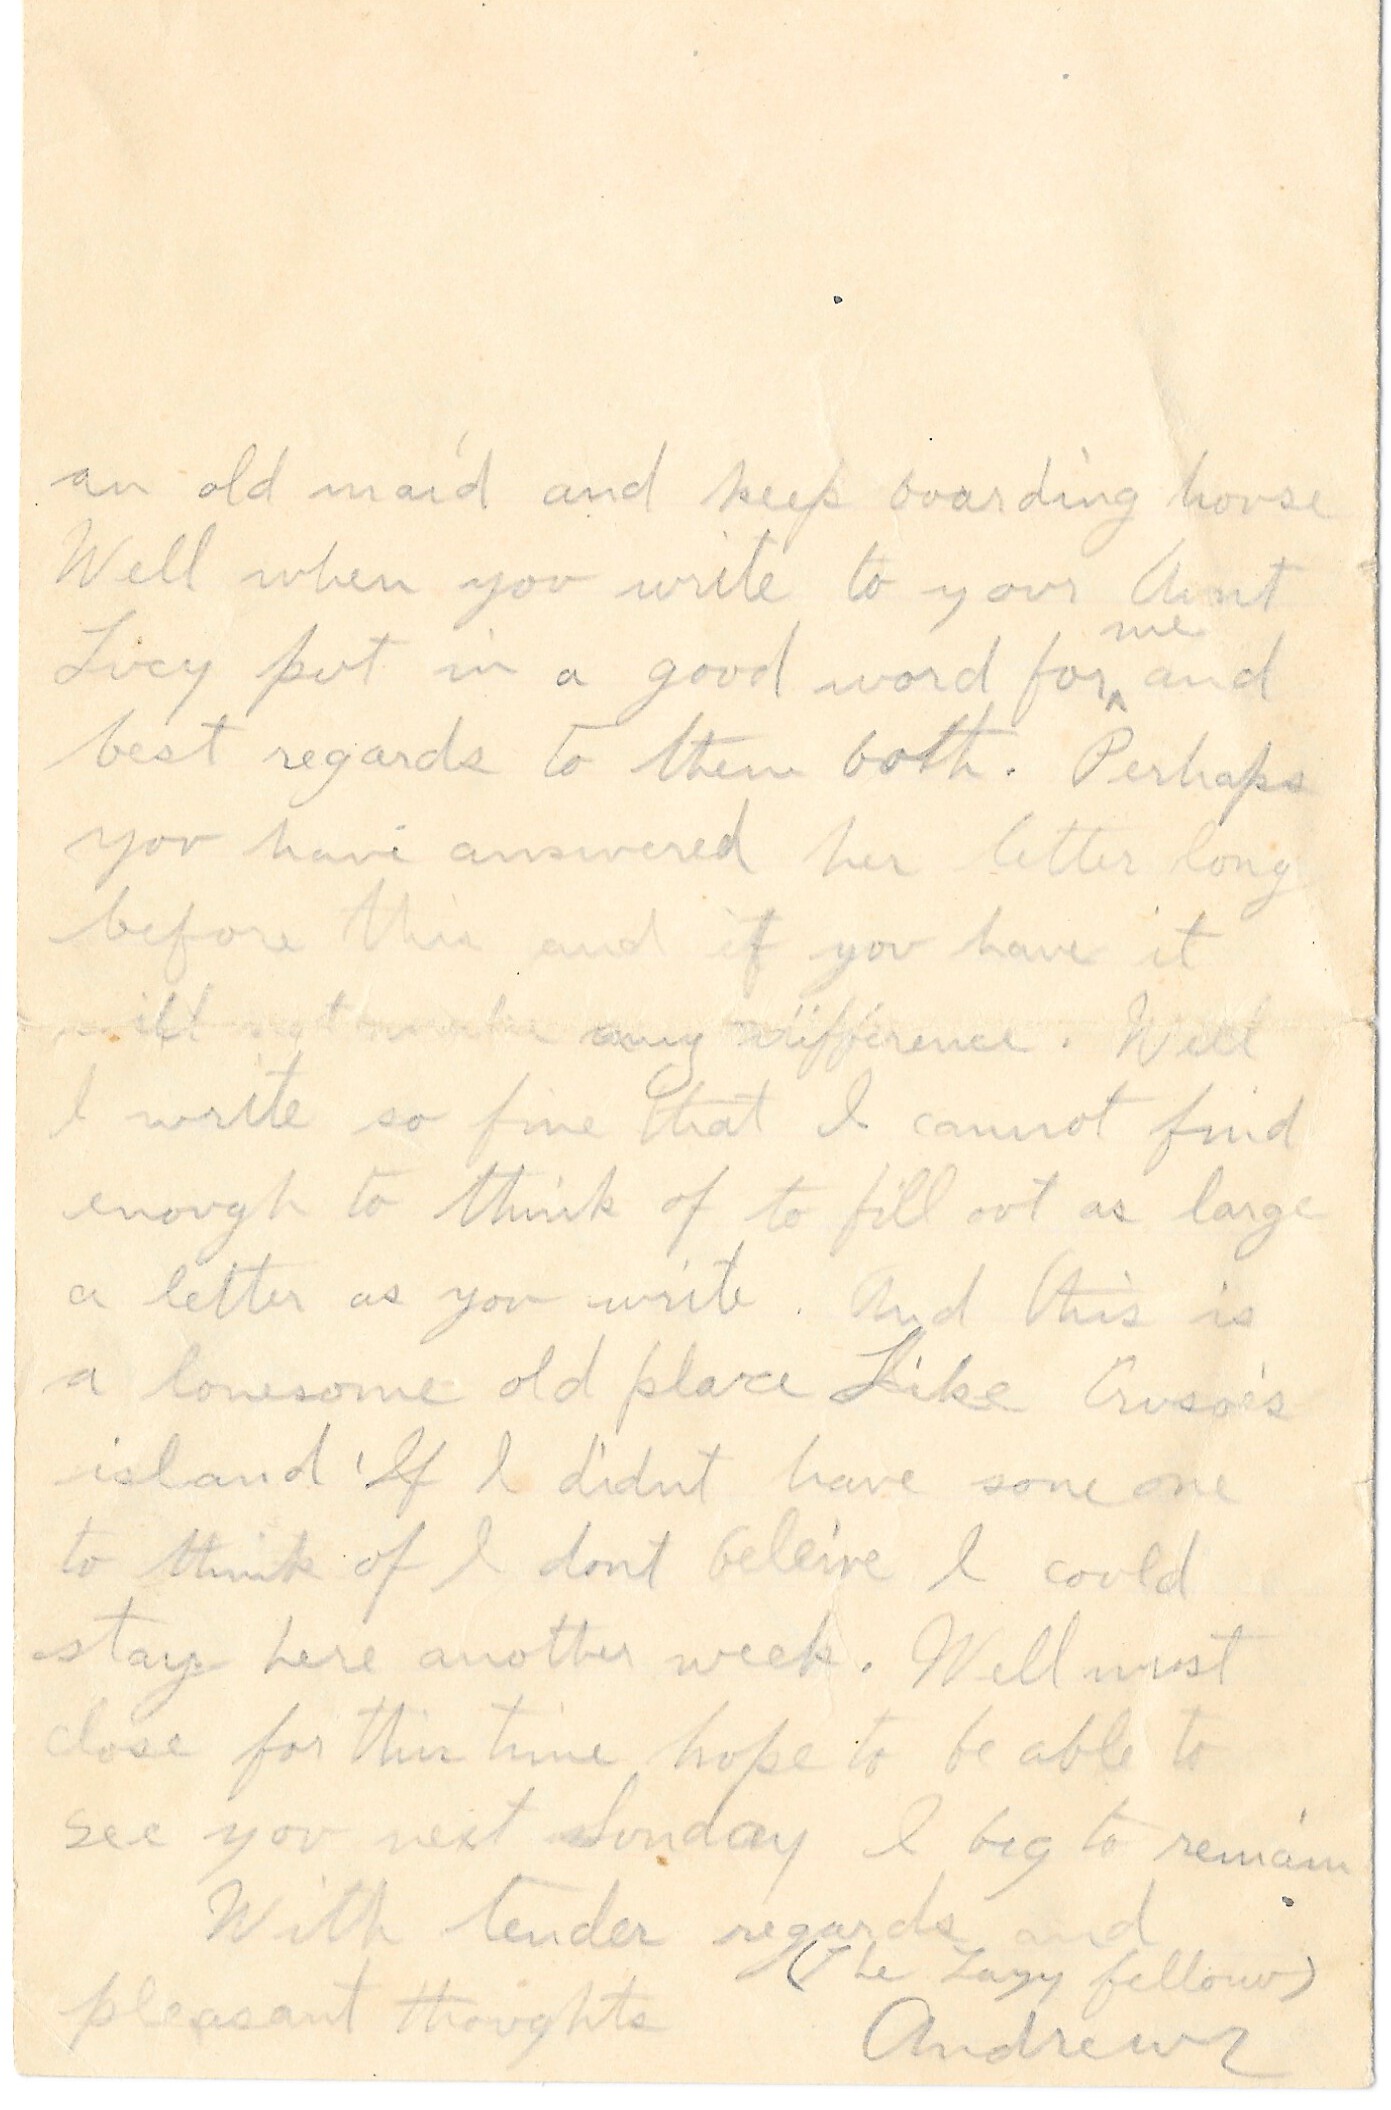 an old maid and keep boarding house
Well when you write to your Aunt
Lucy put in a good word for me and
best regards to them both. Perhaps
you have answered her letter long
before this and if you have it
will not make any difference. Well
I write so fine that I cannot find
enough to think of to fill out as large
a letter as you write. And this is
a lonesome old place Like Crusoe's
island If I didnt have some one
to think of I dont beleive I could
stay here another week. Well must
close for this time hope to be able to
see you next Sunday I beg to remain
With tender regards and
pleasant thoughts
(The Lazy fellow)
Andrew